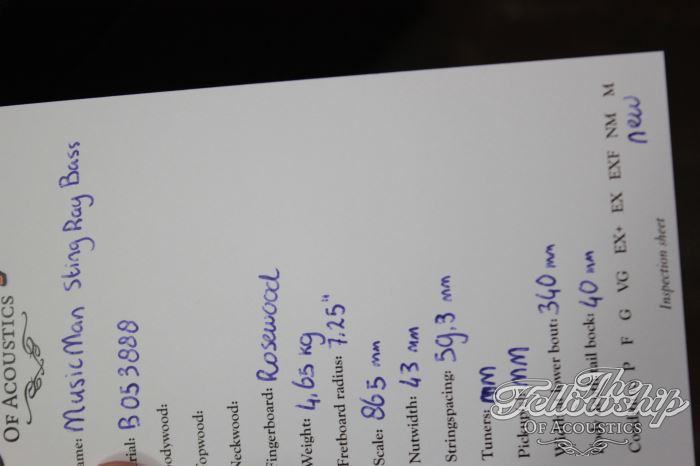 OF ACOUSTICS
ame: MusicMan Sting Ray Bass
rial: B053888
odywood:
Topwood:
Neckwood:
Fingerboard: Rosewood
Weight: 4,65 kg
Fretboard radius: 7,25"
Scale: 865 mm
Nutwidth: 43 mm
Stringspacing: 59,3 mm
Tuners: MM
Pickup MM
Width lower bout: 340 mm
tail bock: 40 mm
Con P F G VG EX+ EX EXF NM M
new
Inspection sheet
The
Fellowship
OF ACOUSTICS